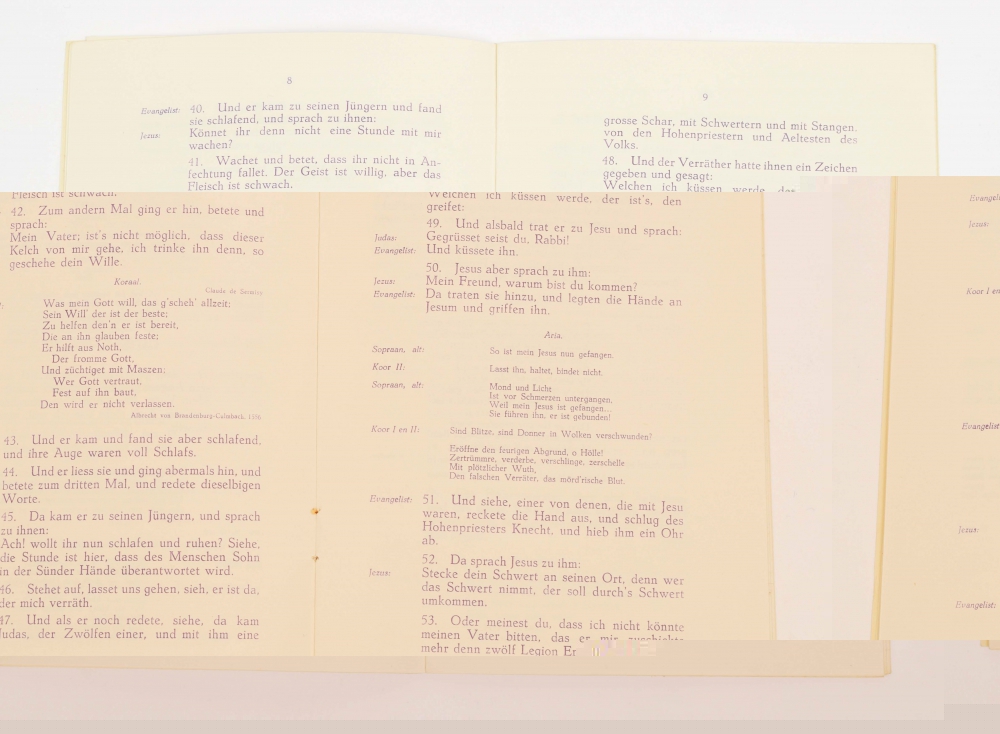 8
Evangelist: 40. Und er kam zu seinen Jüngern und fand
sie schlafend, und sprach zu ihnen:
Jezus: Könnet ihr denn nicht eine Stunde mit mir
wachen?
41. Wachet und betet, dass ihr nicht in An-
fechtung fallet. Der Geist ist willig, aber das
Fleisch ist schwach.
Fleisch ist schwach.
42. Zum andern Mal ging er hin, betete und
sprach:
Mein Vater; ist's nicht möglich, dass dieser
Kelch von mir gehe, ich trinke ihn denn, so
geschehe dein Wille.
Koraal.
Claude de Sermisy
Was mein Gott will, das g'scheh' allzeit;
Sein Will' der ist der beste;
Zu helfen den'n er ist bereit,
Die an ihn glauben feste;
Er hilft aus Noth,
Der fromme Gott,
Und züchtiget mit Maszen;
Wer Gott vertraut,
Fest auf ihn baut,
Den wird er nicht verlassen.
Albrecht von Brandenburg-Culmbach,
43. Und er kam und fand sie aber schlafend,
und ihre Auge waren voll Schlafs.
44. Und er liess sie und ging abermals hin, und
betete zum dritten Mal, und redete dieselbigen
Worte.
45. Da kam er zu seinen Jüngern, und sprach
zu ihnen:
Ach! wollt ihr nun schlafen und ruhen? Siehe,
die Stunde ist hier, dass des Menschen Sohn
in der Sünder Hände überantwortet wird.
46. Stehet auf, lasset uns gehen, sieh, er ist da,
der mich verräth.
47. Und als er noch redete, siehe, da kam
Judas, der Zwölfen einer, und mit ihm eine
9
grosse Schar, mit Schwertern und mit Stangen,
von den Hohenpriestern und Aeltesten des
Volks.
48. Und der Verräther hatte ihnen ein Zeichen
gegeben und gesagt:
Welchen ich küssen werde, der
Welchen ich küssen werde, der ist's, den
greifet:
49. Und alsbald trat er zu Jesu und sprach:
Judas: Gegrüsset seist du, Rabbi!
Evangelist: Und küssete ihn.
50. Jesus aber sprach zu ihm:
Jezus: Mein Freund, warum bist du kommen?
Evangelist: Da traten sie hinzu, und legten die Hände an
Jesum und griffen ihn.
Aria.
Sopraan, alt: So ist mein Jesus nun gefangen.
Koor II: Lasst ihn, haltet, bindet nicht.
Sopraan, alt: Mond und Licht
Ist vor Schmerzen untergangen,
Weil mein Jesus ist gefangen...
Sie führen ihn, er ist gebunden!
Koor I en II: Sind Blitze, sind Donner in Wolken verschwunden?
Eröffne den feurigen Abgrund, o Hölle!
Zertrümmre, verderbe, verschlinge, zerschelle
Mit plötzlicher Wuth,
Den falschen Verräter, das mörd'rische Blut.
Evangelist: 51. Und siehe, einer von denen, die mit Jesu
waren, reckete die Hand aus, und schlug des
Hohenpriesters Knecht, und hieb ihm ein Ohr
ab.
52. Da sprach Jesus zu ihm:
Jezus: Stecke dein Schwert an seinen Ort, denn wer
das Schwert nimmt, der soll durch's Schwert
umkommen.
53. Oder meinest du, dass ich nicht könnte
meinen Vater bitten, das er mir zuschickte
mehr denn zwölf Legion
Jezus:
Koor I en
Evangelist
Jezus:
Evangelist: